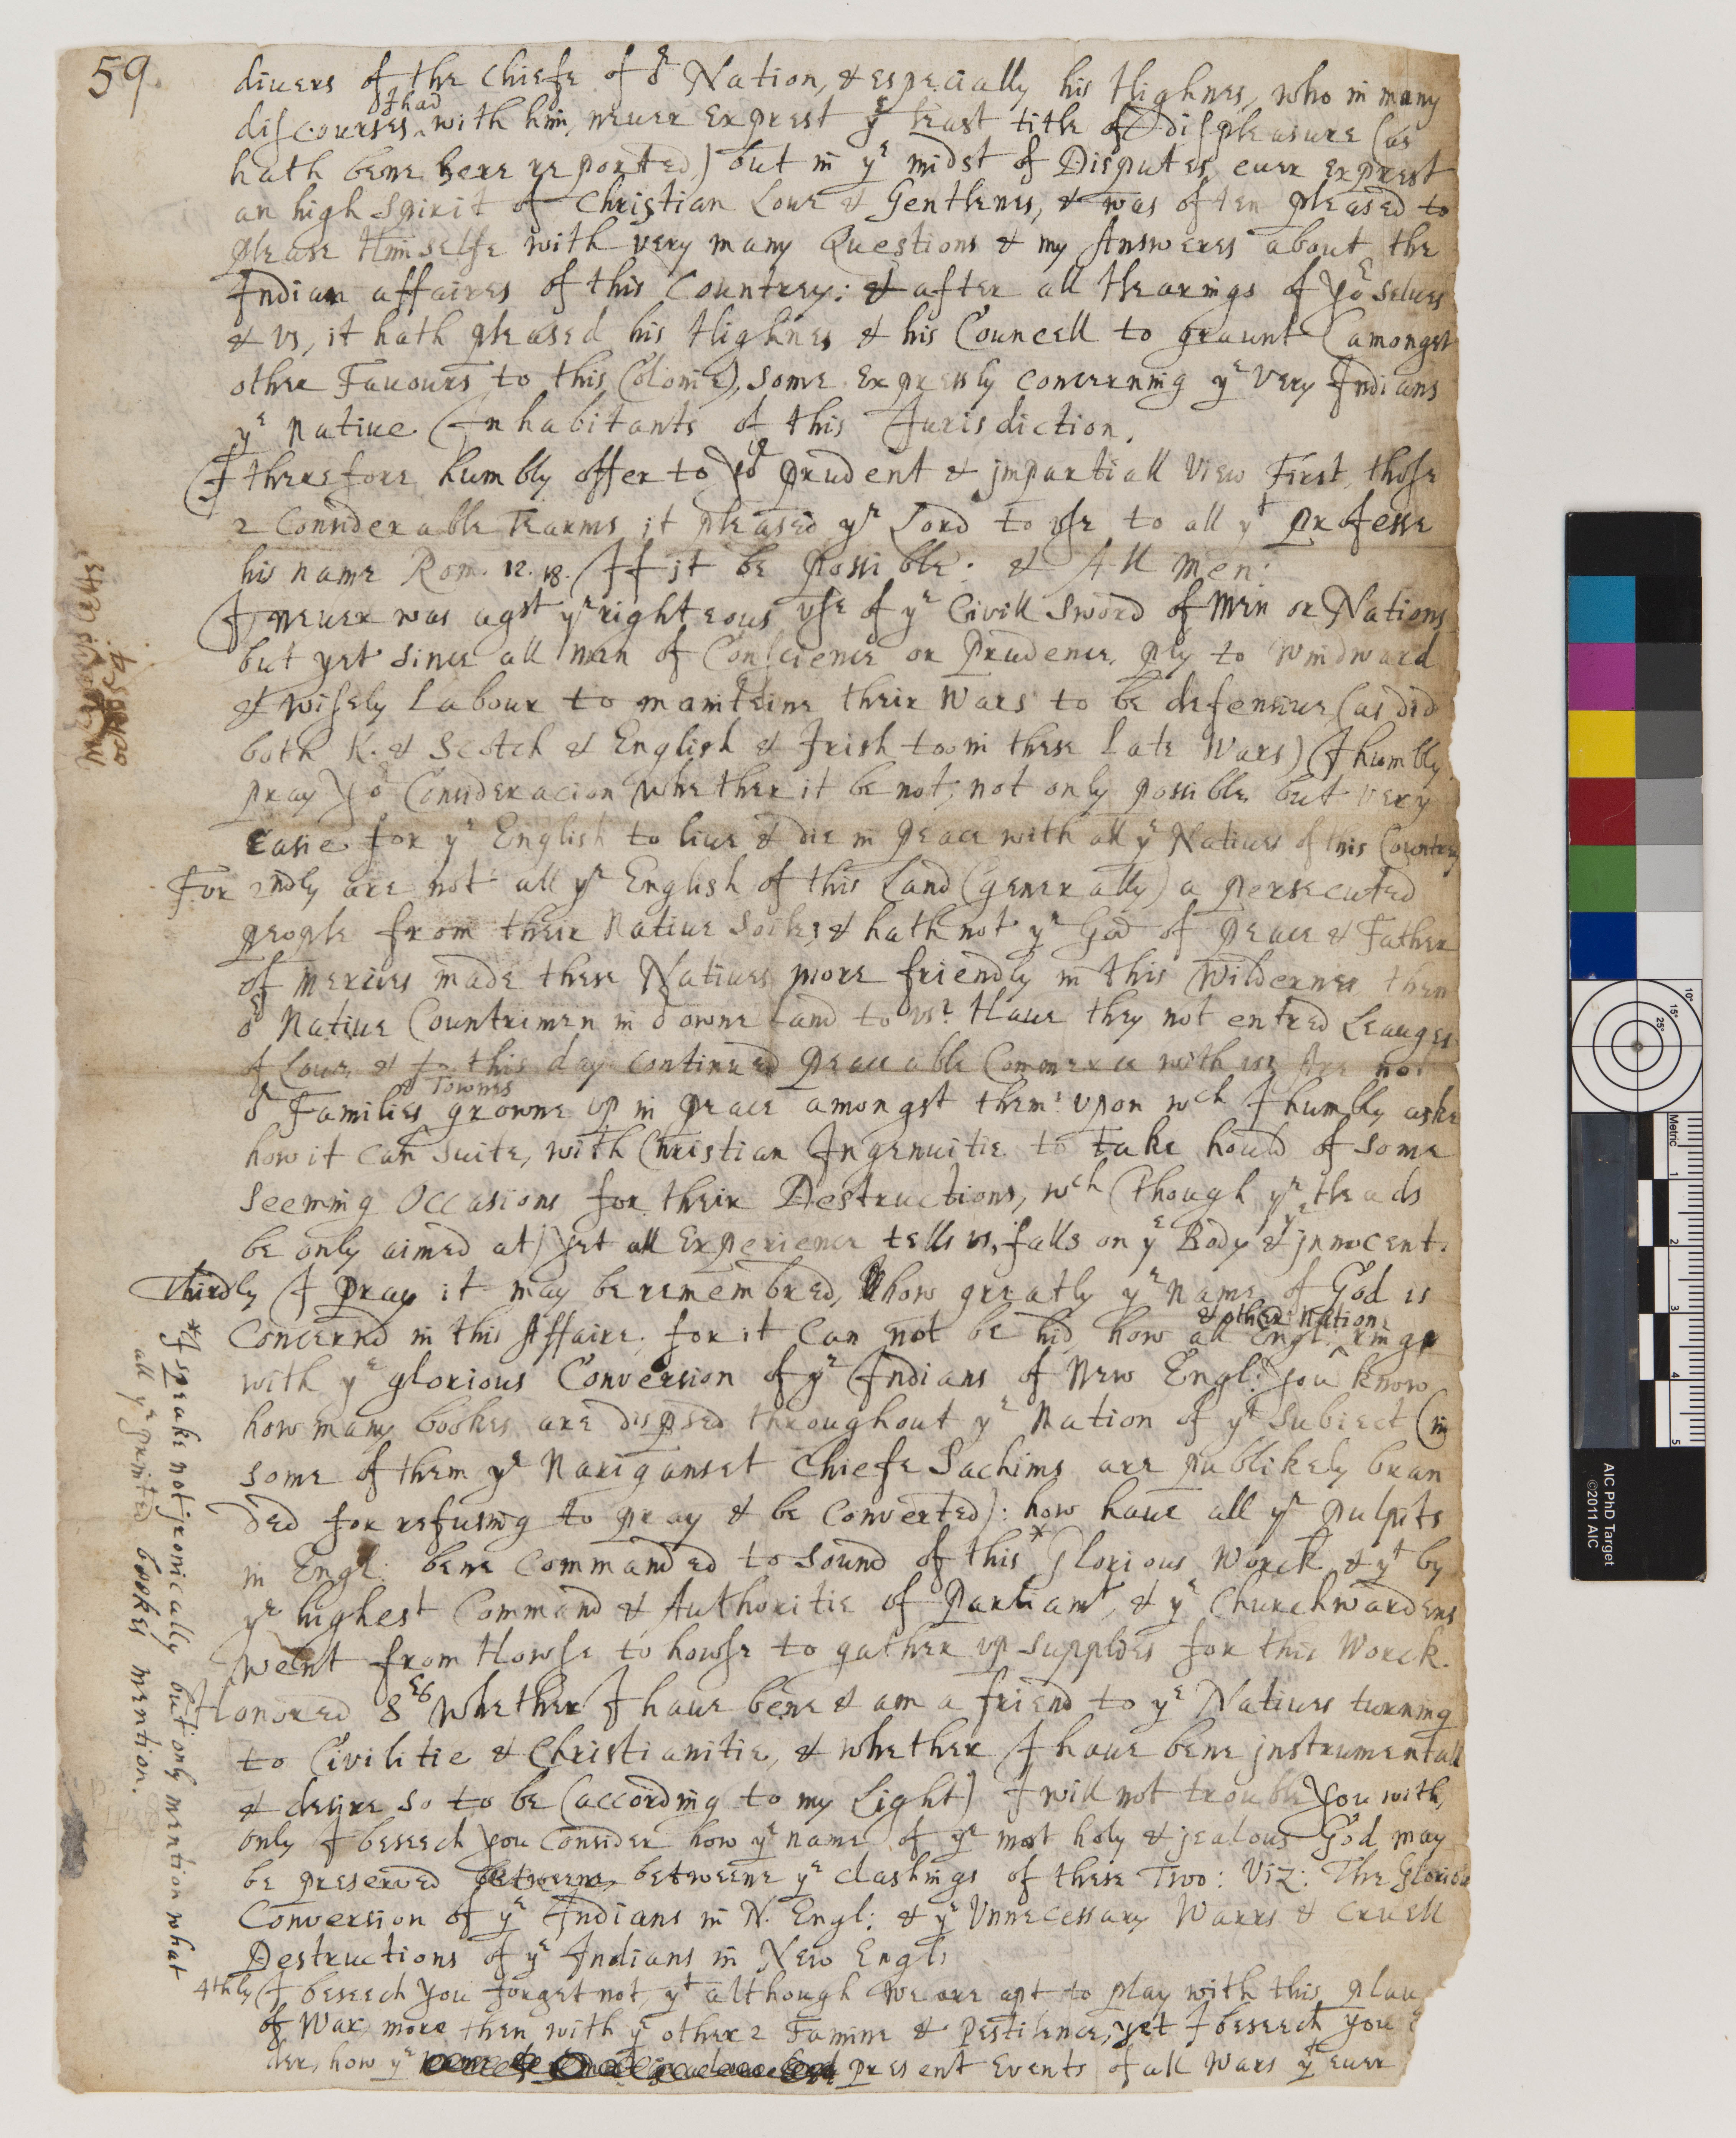 59.
divers of the Chiefe of or Nation, & especially his Highnes, who in many
discourses I had with him, never Exprest ye least title of displeasure (as
hath bene here reported) but in ye midst of Disputes, ever Exprest
an high Spirit of Christian Love & Gentlenes, & was often pleased to
please Himselfe with very many Questions & my Answeres about the
Indian affaires of this Countrey: & after all Hearings of yor selves
& us, it hath pleased his Highnes & his Councell to graunt (amongst
other Favours to this Colonie), some Expresly concerning ye very Indians
ye native Inhabitants of this Jurisdiction.
I therefore humbly offer to yor prudent & impartiall view First, those
2 Considerable tearms it pleased ye Lord to use to all yt professe
his name Rom. 12. 18. If it be possible: & All men:
I never was agst ye righteous use of ye Civill Sword of Men or Nations
but yet since all men of Conscience or Prudence, ply to Windward
& wisely Labour to mainteine their Wars to be defensive (as did
both K. & Scotch & English & Irish too in these late Wars) I humbly
pray yor Consideracion whether it be not, not only possible but very
easie for ye English to live & die in peace with all ye Natives of this Countrey
For 2ndly are not all ye English of this Land (generally) a persecuted
people from their Native Soile, & hath not ye God of peace & Father
of mercies made these Natives more friendly in this Wildernes then
or Native Countrimen in or owne Land to us? Have they not entred Leauges
of Love, & to this day continued peaceable Commerce with us? Are not
or Families & Townes growne up in peace amongst them? upon wch I humbly aske
how it can suite, with Christian Ingenuitie to take hould of some
seeming Occasions for their Destructions, wch (though ye Heads
be only aimed at) yet all Experience tells us, falls on ye Body & ye innocent.
Thirdly I pray it may be remembred, how greatly ye name of God is
Concernd in this Affaire, for it can not be hid how all Engl: & other Nations ring
with ye glorious Conversion of ye Indians of New Engl: you know
how many bookes are dispsed throughout ye Nation of yt Subiect (in
some of them ye Nariganset Chiefe Sachims are publikely bran
ded for refusing to pray & be Converted): how have all ye pulpits
in Engl: bene Commanded to Sound of this * Glorious Worck, & yt by
ye highest Command & Authoritie of Parliamt, & ye Churchwardens
went from Howse to howse to gather up supplies for this Worck.
Honored Srs Whether I have bene & am a friend to ye Natives turning
to Civilitie & Christianitie, & whether I have bene instrumentall
& desire so to be (according to my Light) I will not trouble you with,
only I beseech you consider how ye name of ye most holy & jealous God may
be preserved betweene ye clashings of these Two: Viz: The Glorious
Conversion of ye Indians in N. Engl: & ye Unnecessary Warrs & cruell
Destructions of ye Indians in New Engl:
4thly I beseech you forget not, yt although we are apt to play with this plau
of War more then with ye other 2 Famine & Pestilence, yet I beseech you
der, how ye present Events of all Wars yt ever
*I speake not ironically but only mention what
all ye printed bookes mention.